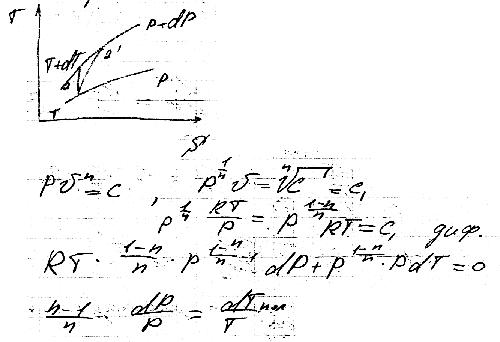 T
P+dP
T+dT
a'
P
T
S
Pυⁿ = c , P^{1/n} υ = ⁿ√c = c₁
P^{1/n} RT/P = P^{(1-n)/n} RT = c₁ диф.
RT · (1-n)/n · P^{(1-n)/n - 1} dP + P^{(1-n)/n} · RdT = 0
(n-1)/n · dP/P = dT пол/T